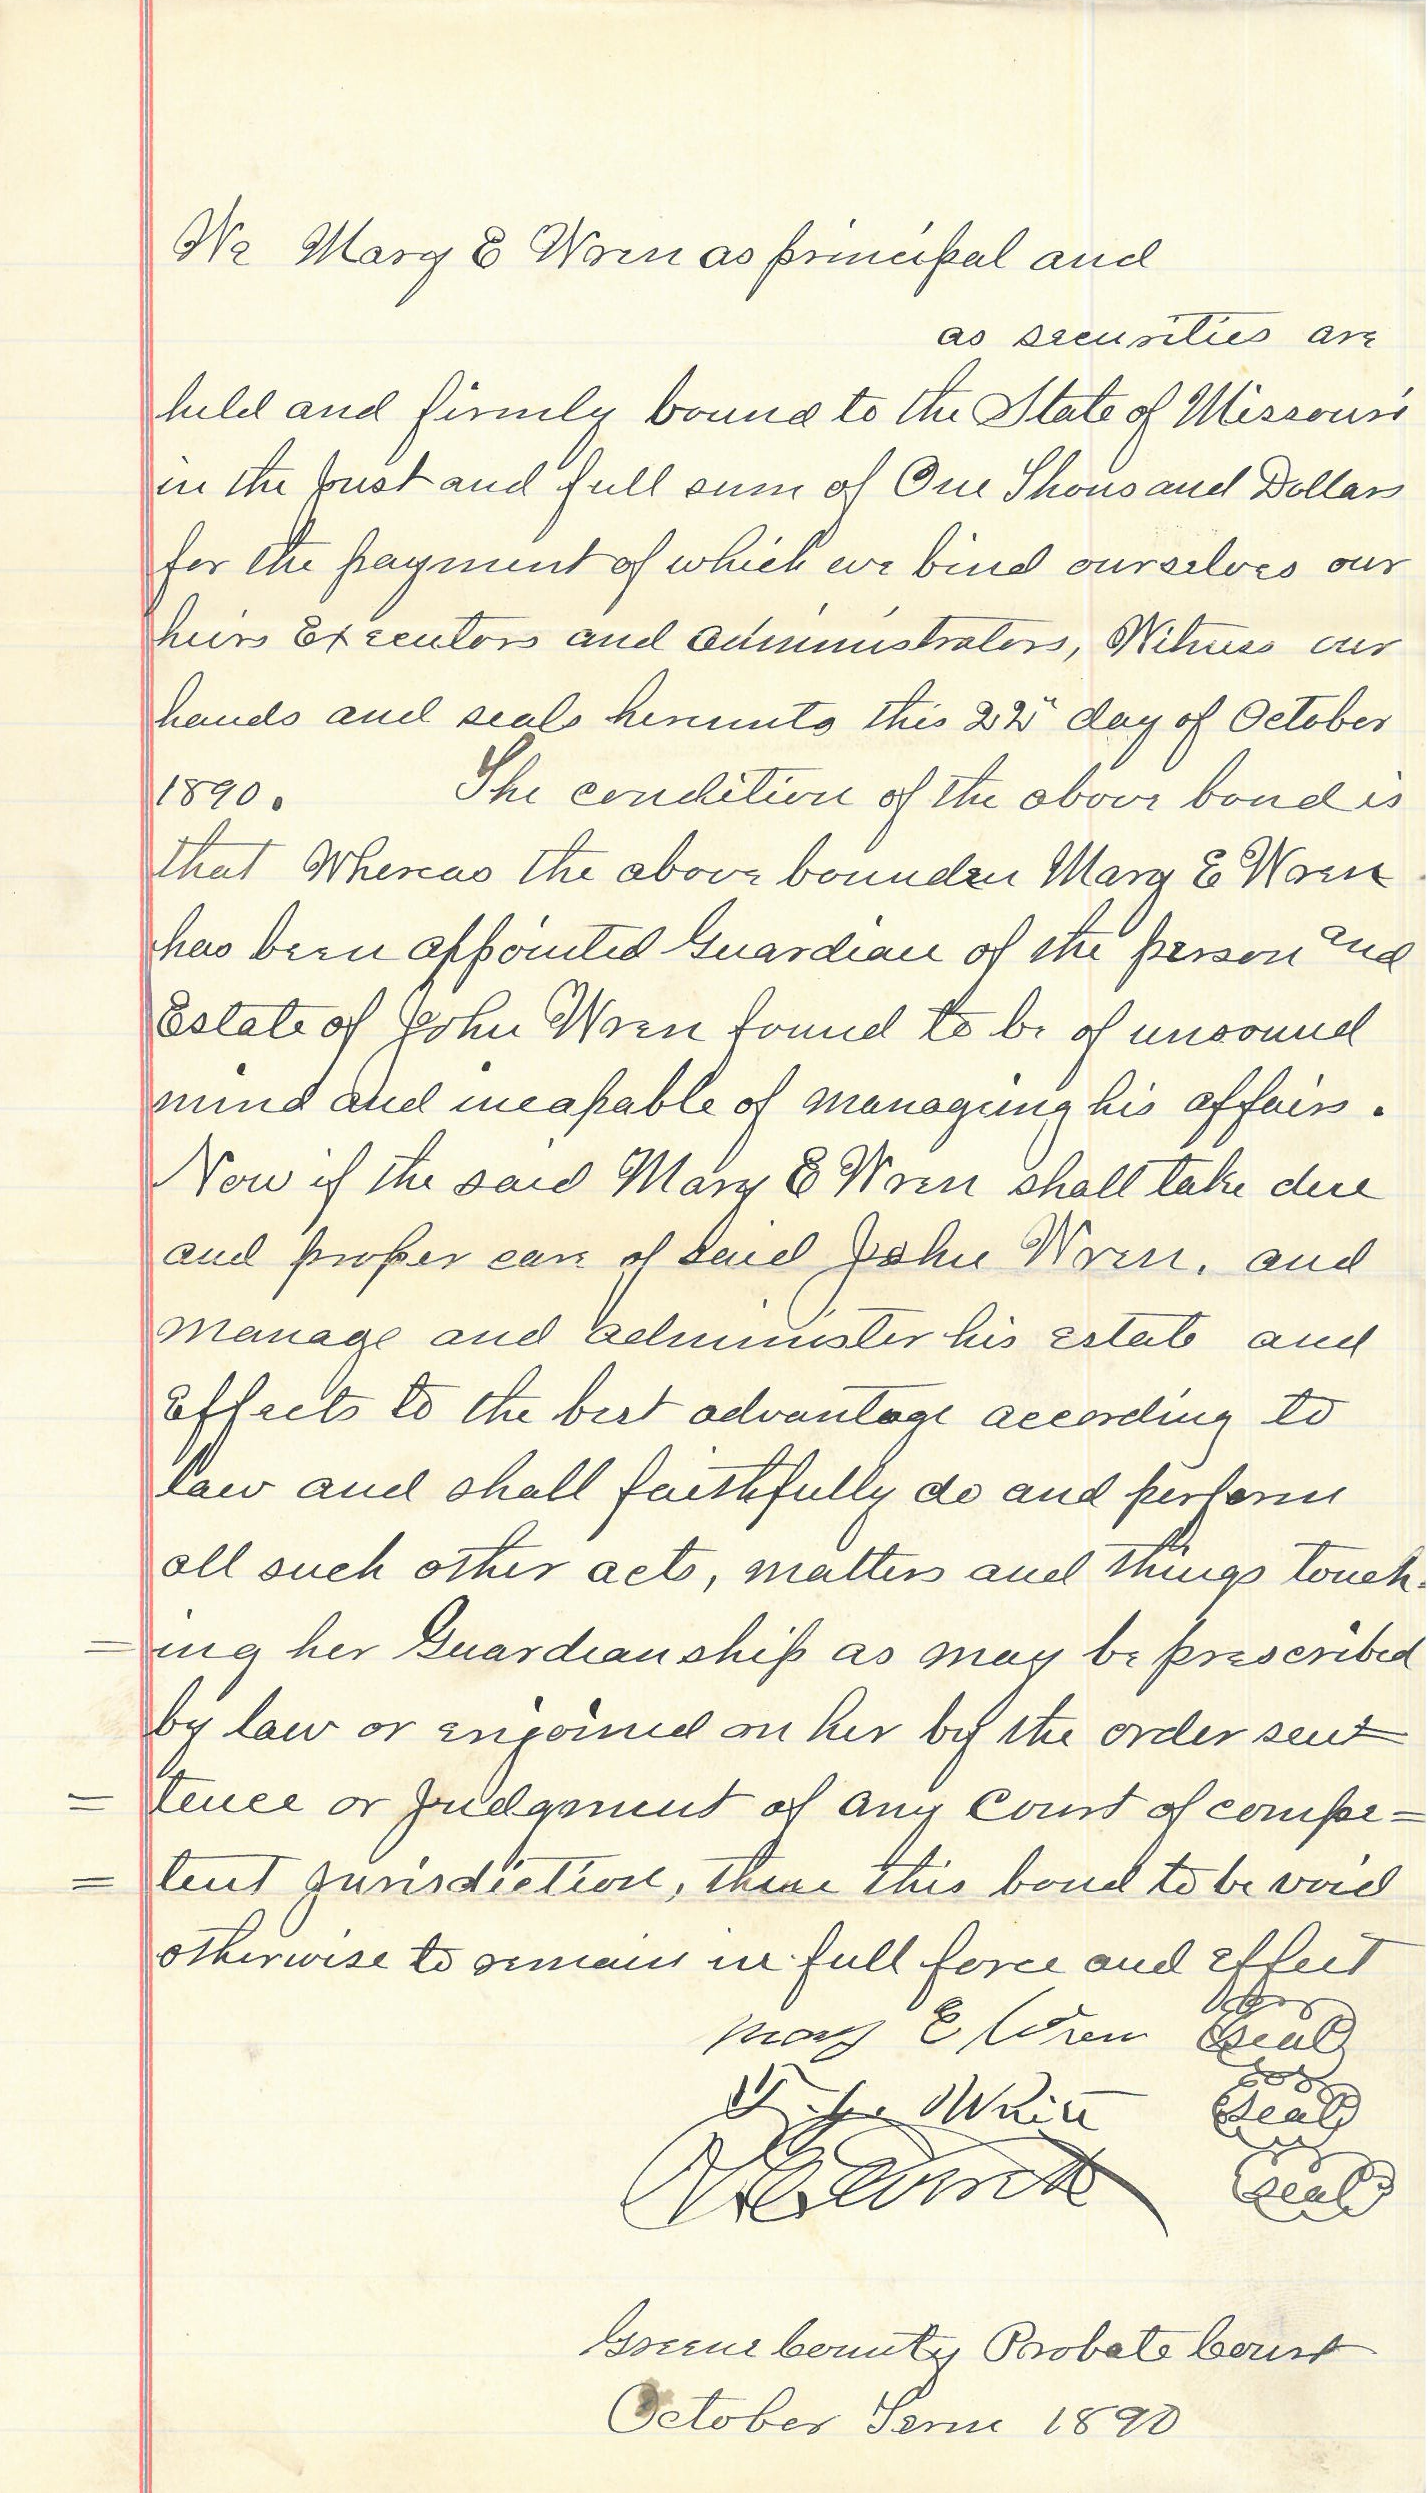 We Mary E Wren as principal and
as securities are
held and firmly bound to the State of Missouri
in the just and full sum of One Thousand Dollars
for the payment of which we bind ourselves our
heirs Executors and administrators, Witness our
hands and seals hereunto this 22" day of October
1890. The condition of the above bond is
that Whereas the above bounden Mary E Wren
has been appointed Guardian of the person and
Estate of John Wren found to be of unsound
mind and incapable of managing his affairs.
Now if the said Mary E Wren shall take due
and proper care of said John Wren, and
manage and administer his estate and
Effects to the best advantage according to
law and shall faithfully do and perform
all such other acts, matters and things touch-
=ing her Guardianship as may be prescribed
by law or enjoined on her by the order sent=
=tence or Judgment of any Court of compe=
=tent jurisdiction, then this bond to be void
otherwise to remain in full force and effect
Mary E Wren seal
White seal
seal
Greene County Probate Court
October Term 1890